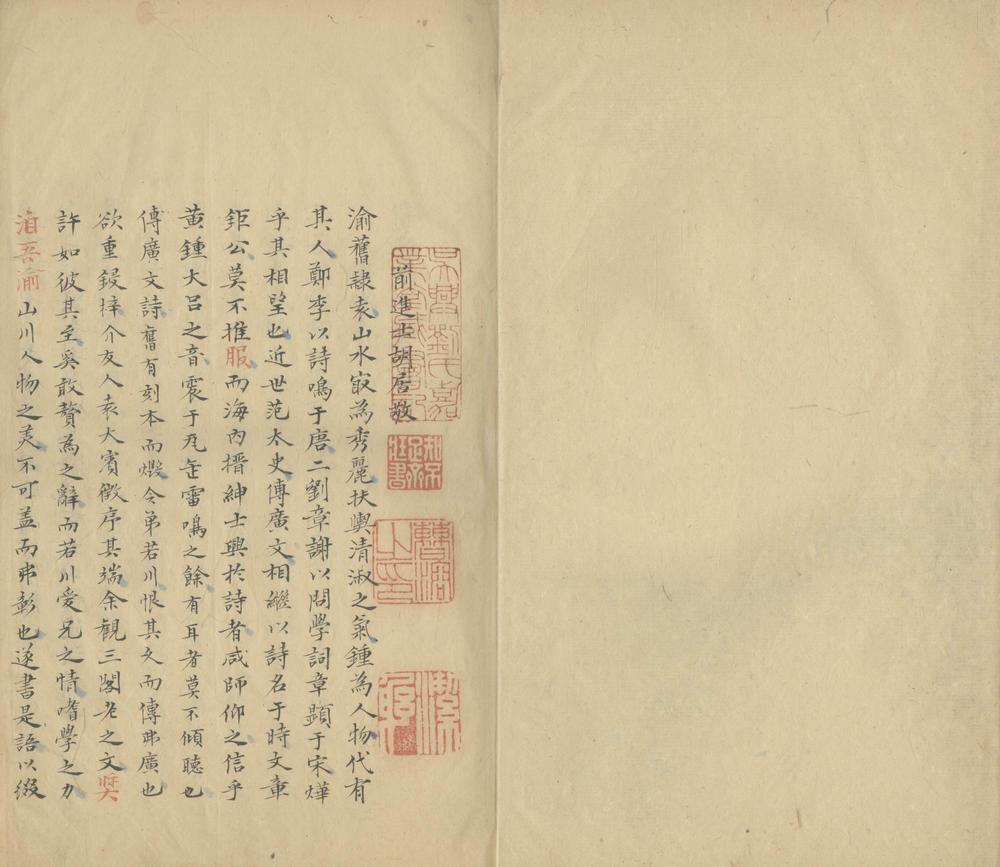 前進士胡居敬
渝舊隷袁山水㝡為秀麗扶輿清淑之氣鍾為人物代有
其人鄭李以詩鳴于唐二劉章謝以問學詞章顯于宋燁
乎其相望也近世范太史傅廣文相繼以詩名于時文章
鉅公莫不推服而海內搢紳士興於詩者咸師仰之信乎
黃鍾大呂之音震于瓦缶雷鳴之餘有耳者莫不傾聽也
傅廣文詩舊有刻本而燬今弟若川恨其久而傳弗廣也
欲重鋟梓介友人袁大賓徵序其端余觀三閣老之文奬
許如彼其至奚敢贅為之辭而若川愛兄之情嗜學之力
洎吾渝山川人物之美不可盖而弗彰也遂書是語以綴